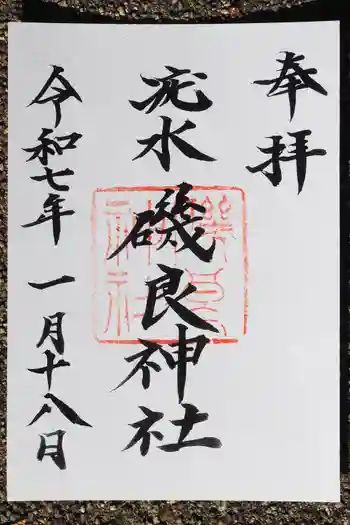 奉拝
疣水磯良神社
令和七年一月十八日
磯良神社